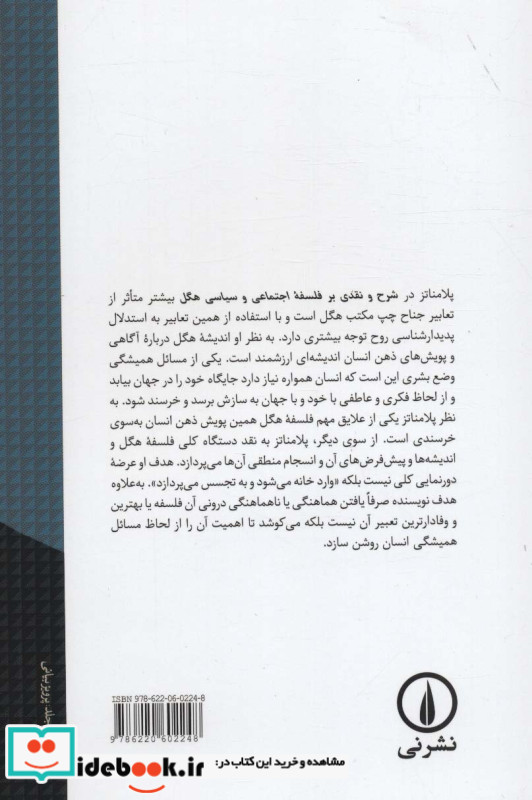 پلامناتز در شرح و نقدی بر فلسفهٔ اجتماعی و سیاسی هگل بیشتر متأثر از
تعابیر جناح چپ مکتب هگل است و با استفاده از همین تعابیر به استدلال
پدیدارشناسی روح توجه بیشتری دارد. به نظر او اندیشهٔ هگل دربارهٔ آگاهی
و پویش‌های ذهن انسان اندیشه‌ای ارزشمند است. یکی از مسائل همیشگی
وضع بشری این است که انسان همواره نیاز دارد جایگاه خود را در جهان بیابد
و از لحاظ فکری و عاطفی با خود و با جهان به سازش برسد و خرسند شود. به
نظر پلامناتز یکی از علایق مهم فلسفهٔ هگل همین پویش ذهن انسان به‌سوی
خرسندی است. از سوی دیگر، پلامناتز به نقد دستگاه کلی فلسفهٔ هگل و
اندیشه‌ها و پیش‌فرض‌های آن و انسجام منطقی آن‌ها می‌پردازد. هدف او عرضهٔ
دورنمایی کلی نیست بلکه «وارد خانه می‌شود و به تجسس می‌پردازد». به‌علاوه
هدف نویسنده صرفاً یافتن هماهنگی یا ناهماهنگی درونی آن فلسفه یا بهترین
و وفادارترین تعبیر آن نیست بلکه می‌کوشد تا اهمیت آن را از لحاظ مسائل
همیشگی انسان روشن سازد.
جلد: پرویز بیانی
ISBN 978-622-06-0224-8
9 786220 602248
نشرنی
مشاهده و خرید این کتاب در:
idebook.ir